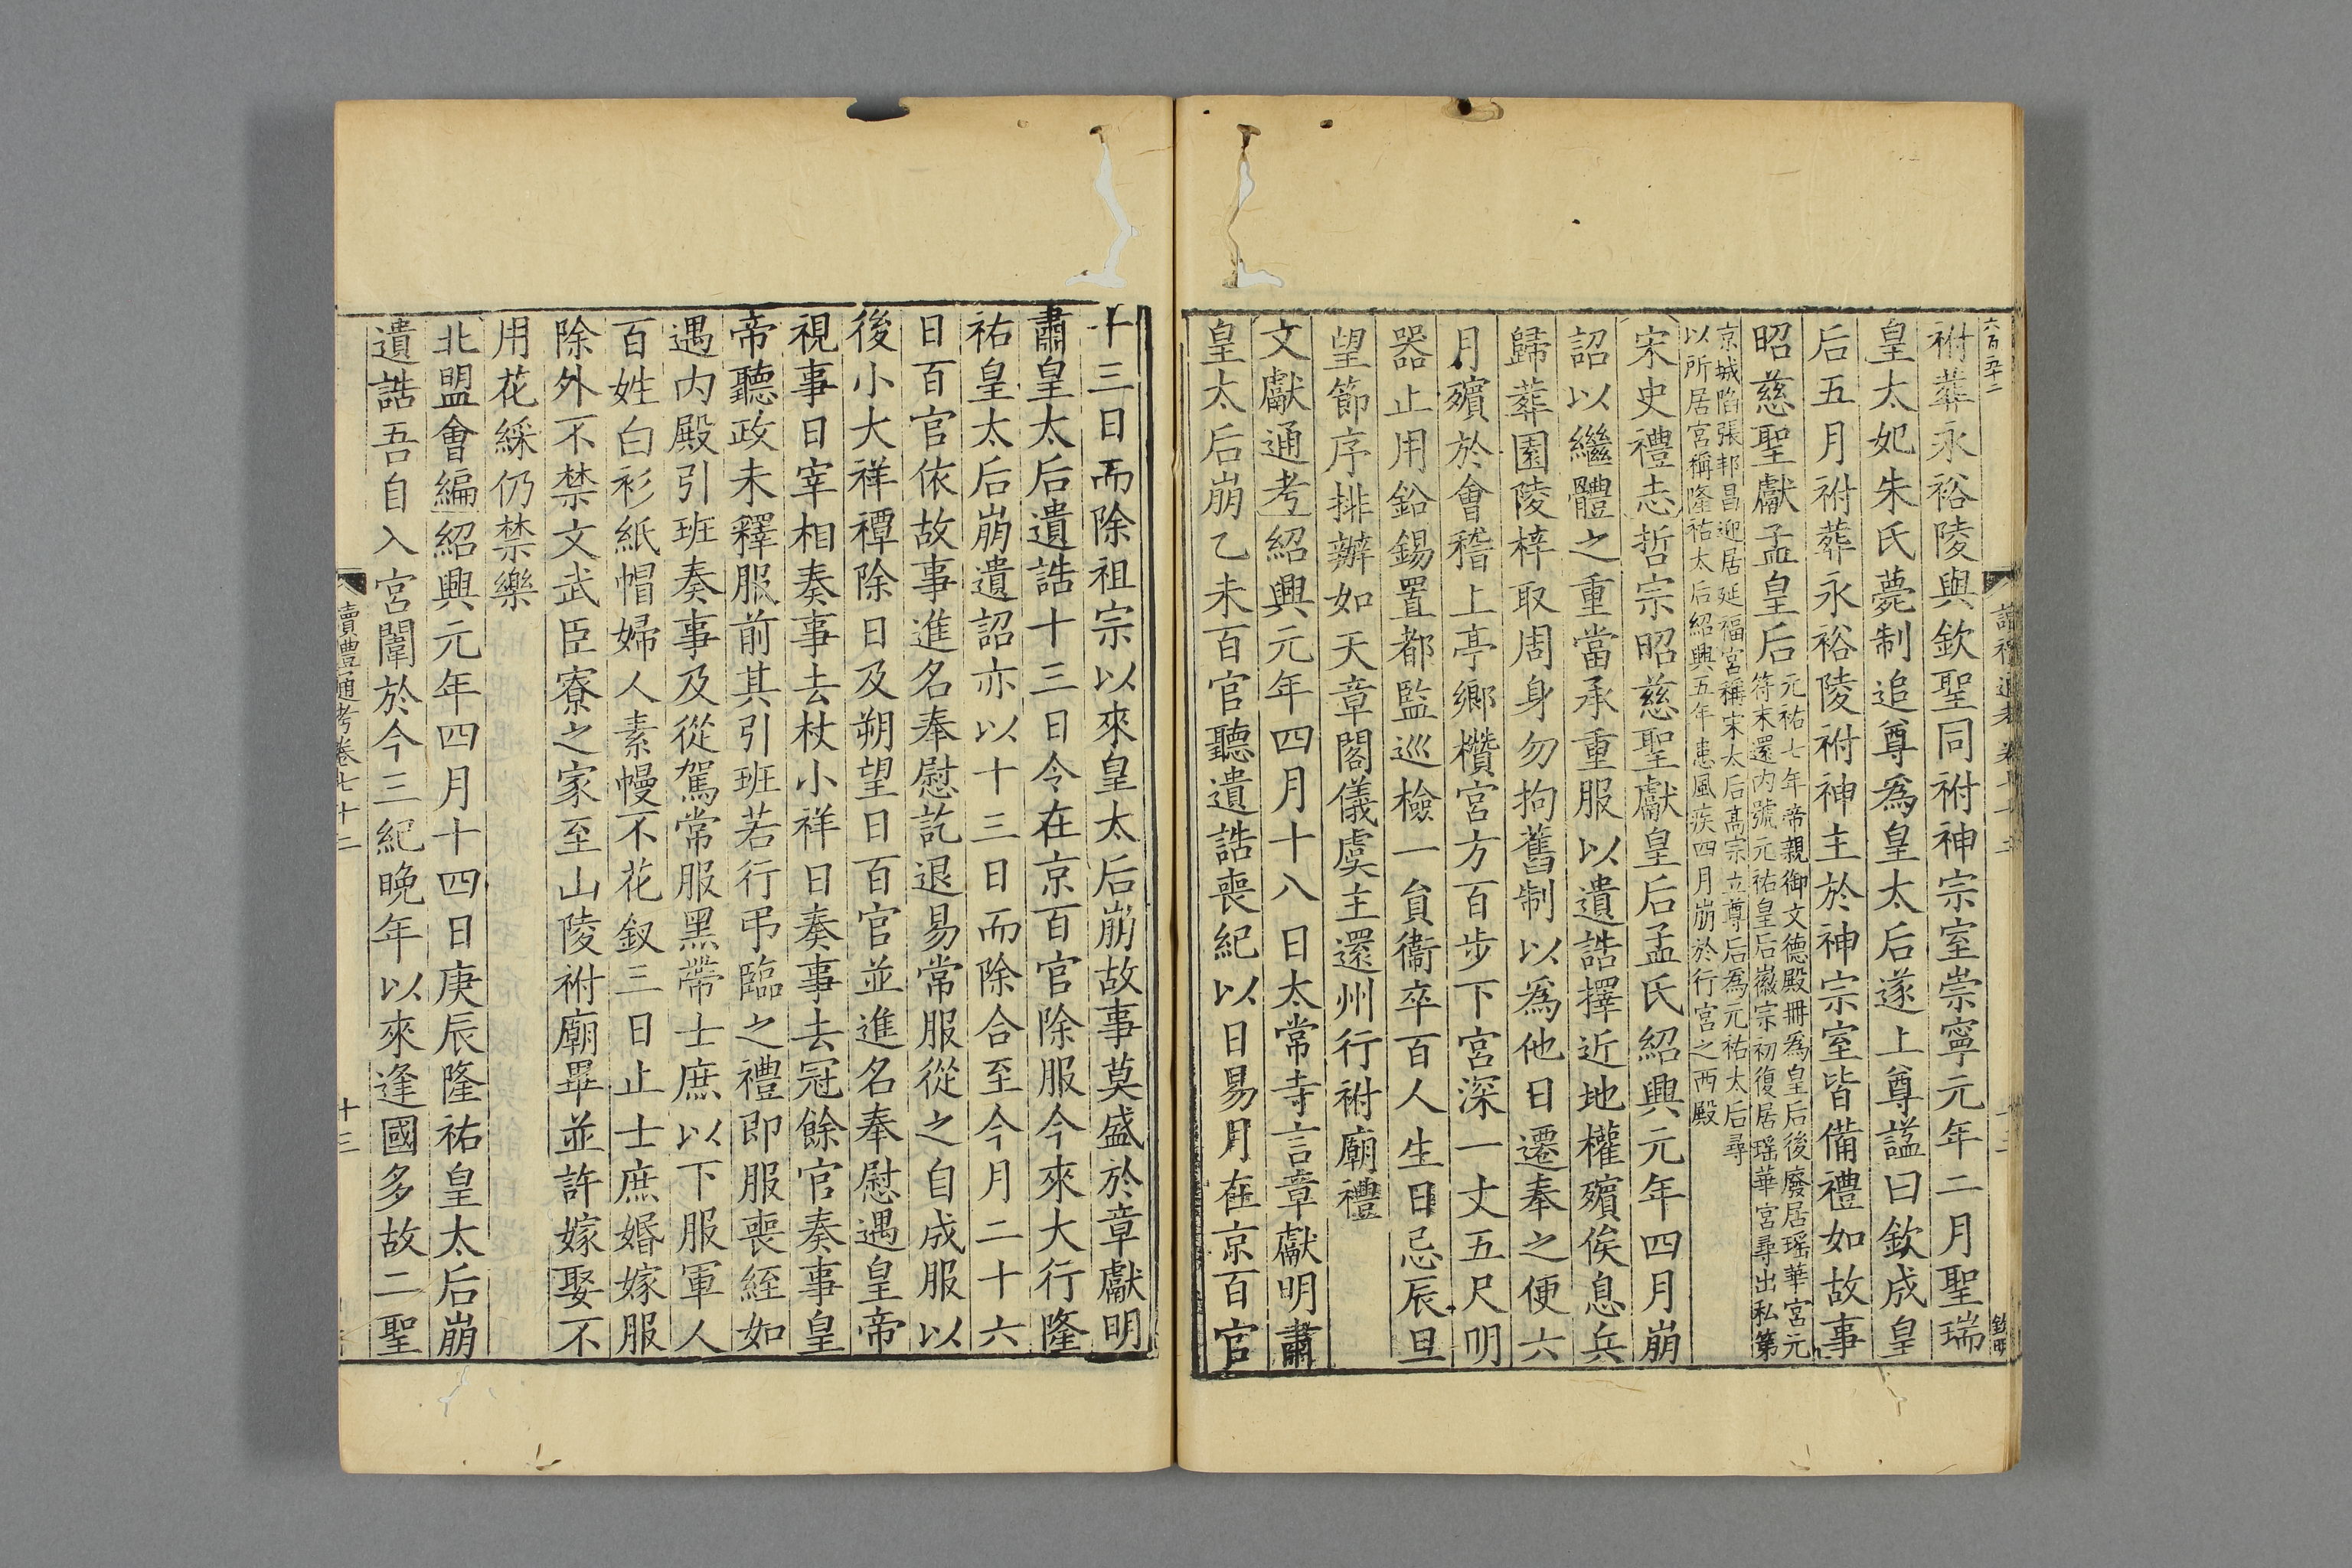 六百五十二
祔葬永裕陵與欽聖同祔神宗室崇寧元年二月聖瑞
皇太妃朱氏薨制追尊爲皇太后遂上尊諡曰欽成皇
后五月祔葬永裕陵祔神主於神宗室皆備禮如故事
昭慈聖獻孟皇后元祐七年帝親御文德殿冊為皇后後廢居瑶華宮元
符末還内號元祐皇后徽宗初復居瑶華宮尋出私第
京城陷張邦昌迎居延福宮稱宋太后高宗立尊后為元祐太后尋
以所居宮稱隆祐太后紹興五年患風疾四月崩於行宮之西殿
宋史禮志哲宗昭慈聖獻皇后孟氏紹興元年四月崩
詔以繼體之重當承重服以遺誥擇近地權殯俟息兵
歸葬園陵梓取周身勿拘舊制以為他日遷奉之便六
月殯於會稽上亭鄉欑宮方百步下宮深一丈五尺明
器止用鉛錫置都監巡檢一員衞卒百人生日忌辰旦
望節序排辦如天章閣儀虞主還州行祔廟禮
文獻通考紹興元年四月十八日太常寺言章獻明肅
皇太后崩乙未百官聽遺誥喪紀以日易月在京百官
十三日而除祖宗以來皇太后崩故事莫盛於章獻明
肅皇太后遺誥十三日令在京百官除服今來大行隆
祐皇太后崩遺詔亦以十三日而除合至今月二十六
日百官依故事進名奉慰訖退易常服從之自成服以
後小大祥禫除日及朔望日百官並進名奉慰遇皇帝
視事日宰相奏事去杖小祥日奏事去冠餘官奏事皇
帝聽政未釋服前其引班若行弔臨之禮即服喪絰如
遇内殿引班奏事及從駕常服黑帶士庶以下服軍人
百姓白衫紙帽婦人素幔不花釵三日止士庶婚嫁服
除外不禁文武臣寮之家至山陵祔廟畢並許嫁娶不
用花綵仍禁樂
北盟會編紹興元年四月十四日庚辰隆祐皇太后崩
遺誥吾自入宮闈於今三紀晚年以來逢國多故二聖
讀禮通考卷七十二
十三